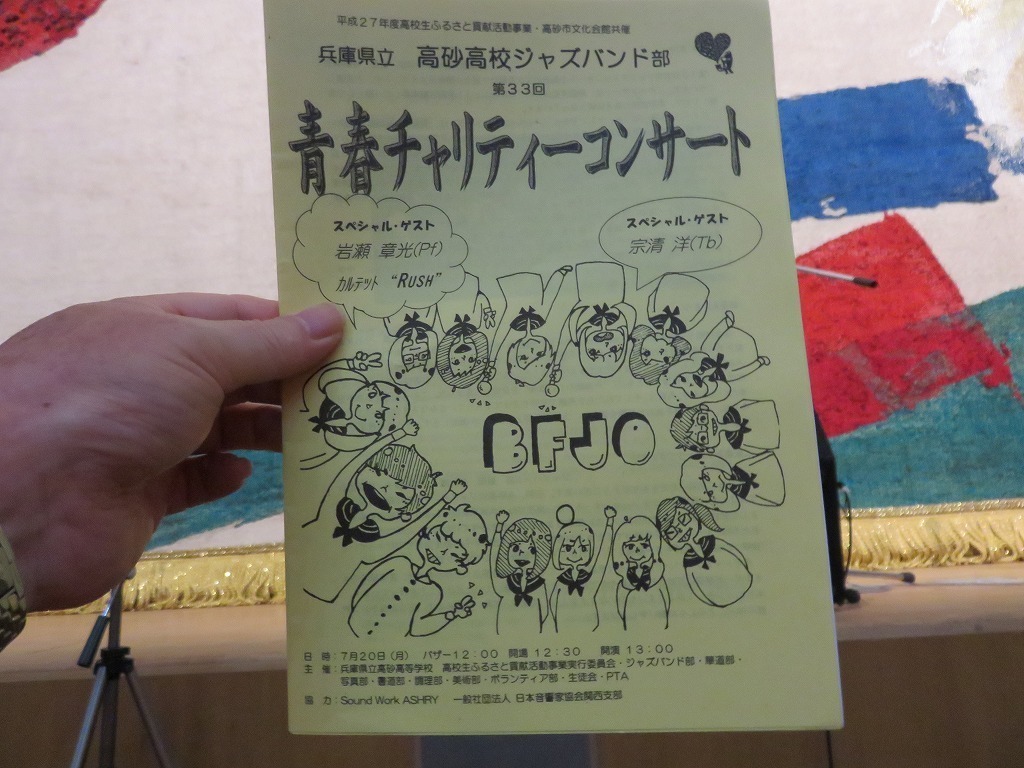 平成27年度高校生ふるさと貢献活動事業・高砂市文化会館共催
兵庫県立　高砂高校ジャズバンド部
第33回
青春チャリティーコンサート
スペシャル・ゲスト
岩瀬 章光(Pf)
カルテット “RUSH”
スペシャル・ゲスト
宗清 洋(Tb)
BFJO
日 時：7月20日（月）　バザー12：00　開場 12：30　開演 13：00
主 催：兵庫県立高砂高等学校　高校生ふるさと貢献活動事業実行委員会・ジャズバンド部・華道部・
写真部・書道部・調理部・美術部・ボランティア部・生徒会・PTA
協 力：Sound Work ASHRY　一般社団法人 日本音響家協会関西支部